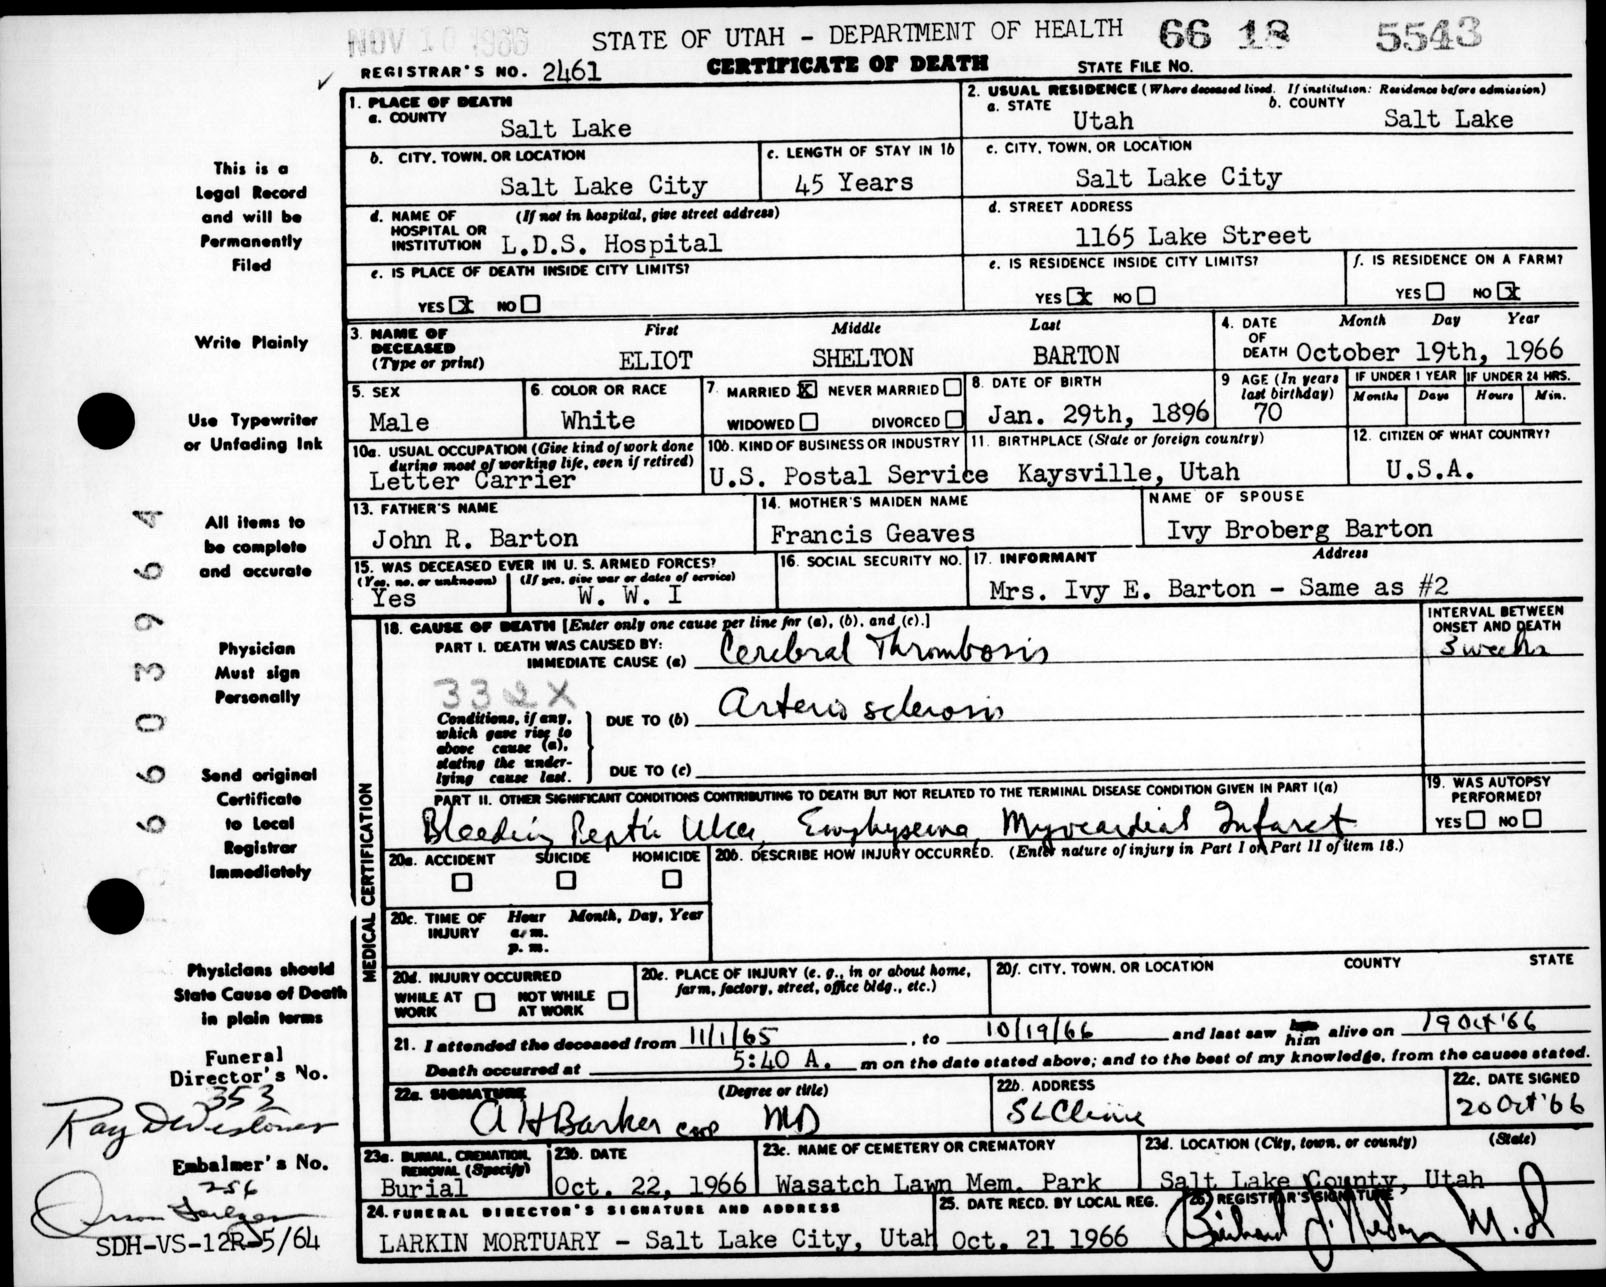 NOV 10 1966
STATE OF UTAH - DEPARTMENT OF HEALTH 66 18 5543
REGISTRAR'S NO. 2461 CERTIFICATE OF DEATH STATE FILE NO.
1. PLACE OF DEATH
a. COUNTY
Salt Lake
2. USUAL RESIDENCE (Where deceased lived. If institution: Residence before admission)
a. STATE b. COUNTY
Utah Salt Lake
b. CITY, TOWN, OR LOCATION
Salt Lake City
c. LENGTH OF STAY IN 1b
45 Years
c. CITY, TOWN, OR LOCATION
Salt Lake City
d. NAME OF (If not in hospital, give street address)
HOSPITAL OR
INSTITUTION L.D.S. Hospital
d. STREET ADDRESS
1165 Lake Street
e. IS PLACE OF DEATH INSIDE CITY LIMITS?
YES x NO
e. IS RESIDENCE INSIDE CITY LIMITS?
YES x NO
f. IS RESIDENCE ON A FARM?
YES NO x
3. NAME OF First Middle Last
DECEASED
(Type or print) ELIOT SHELTON BARTON
4. DATE Month Day Year
OF
DEATH October 19th, 1966
5. SEX
Male
6. COLOR OR RACE
White
7. MARRIED x NEVER MARRIED
WIDOWED DIVORCED
8. DATE OF BIRTH
Jan. 29th, 1896
9 AGE (In years
last birthday)
70
IF UNDER 1 YEAR IF UNDER 24 HRS.
Months Days Hours Min.
10a. USUAL OCCUPATION (Give kind of work done
during most of working life, even if retired)
Letter Carrier
10b. KIND OF BUSINESS OR INDUSTRY
U.S. Postal Service
11. BIRTHPLACE (State or foreign country)
Kaysville, Utah
12. CITIZEN OF WHAT COUNTRY?
U.S.A.
13. FATHER'S NAME
John R. Barton
14. MOTHER'S MAIDEN NAME
Francis Geaves
NAME OF SPOUSE
Ivy Broberg Barton
15. WAS DECEASED EVER IN U. S. ARMED FORCES?
(Yes, no, or unknown) (If yes, give war or dates of service)
Yes W. W. I
16. SOCIAL SECURITY NO.
17. INFORMANT Address
Mrs. Ivy E. Barton - Same as #2
18. CAUSE OF DEATH [Enter only one cause per line for (a), (b), and (c).]
PART I. DEATH WAS CAUSED BY:
IMMEDIATE CAUSE (a) Cerebral Thrombosis
INTERVAL BETWEEN
ONSET AND DEATH
3 weeks
332X
Conditions, if any,
which gave rise to
above cause (a),
stating the under-
lying cause last.
DUE TO (b) Arterio sclerosis
DUE TO (c)
PART II. OTHER SIGNIFICANT CONDITIONS CONTRIBUTING TO DEATH BUT NOT RELATED TO THE TERMINAL DISEASE CONDITION GIVEN IN PART I(a)
Bleeding Peptic Ulcer, Emphysema, Myocardial Infarct
19. WAS AUTOPSY
PERFORMED?
YES NO
20a. ACCIDENT SUICIDE HOMICIDE
20b. DESCRIBE HOW INJURY OCCURRED. (Enter nature of injury in Part I or Part II of item 18.)
20c. TIME OF Hour Month, Day, Year
INJURY a. m.
p. m.
20d. INJURY OCCURRED
WHILE AT WORK NOT WHILE AT WORK
20e. PLACE OF INJURY (e. g., in or about home,
farm, factory, street, office bldg., etc.)
20f. CITY, TOWN, OR LOCATION COUNTY STATE
21. I attended the deceased from 11/1/65, to 10/19/66 and last saw her him alive on 19 Oct '66
Death occurred at 5:40 A. m on the date stated above; and to the best of my knowledge, from the causes stated.
22a. SIGNATURE (Degree or title)
A H Barker MD
22b. ADDRESS
SL Clinic
22c. DATE SIGNED
20 Oct '66
23a. BURIAL, CREMATION,
REMOVAL (Specify)
Burial
23b. DATE
Oct. 22, 1966
23c. NAME OF CEMETERY OR CREMATORY
Wasatch Lawn Mem. Park
23d. LOCATION (City, town, or county) (State)
Salt Lake County, Utah
24. FUNERAL DIRECTOR'S SIGNATURE AND ADDRESS
LARKIN MORTUARY - Salt Lake City, Utah
25. DATE RECD. BY LOCAL REG.
Oct. 21 1966
26. REGISTRAR'S SIGNATURE
M.D
MEDICAL CERTIFICATION
This is a
Legal Record
and will be
Permanently
Filed
Write Plainly
Use Typewriter
or Unfading Ink
All items to
be complete
and accurate
Physician
Must sign
Personally
Send original
Certificate
to Local
Registrar
Immediately
Physicians should
State Cause of Death
in plain terms
Funeral
Director's No.
353
Ray
Embalmer's No.
256
SDH-VS-12R-5/64
660393964